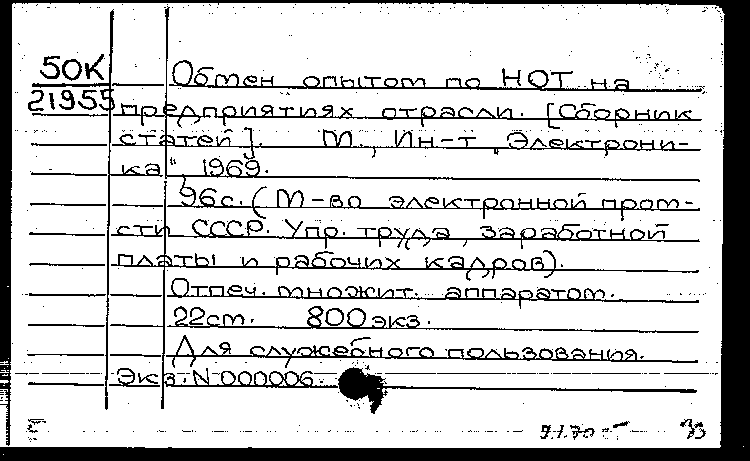 50К
21955
Обмен опытом по НОТ на
предприятиях отрасли. [Сборник
статей]. М., Ин-т „Электрони-
ка“, 1969.
96с. (М-во электронной пром-
сти СССР. Упр. труда, заработной
платы и рабочих кадров).
Отпеч. множит. аппаратом.
22см. 800 экз.
Для служебного пользования.
Экз. N 000006.